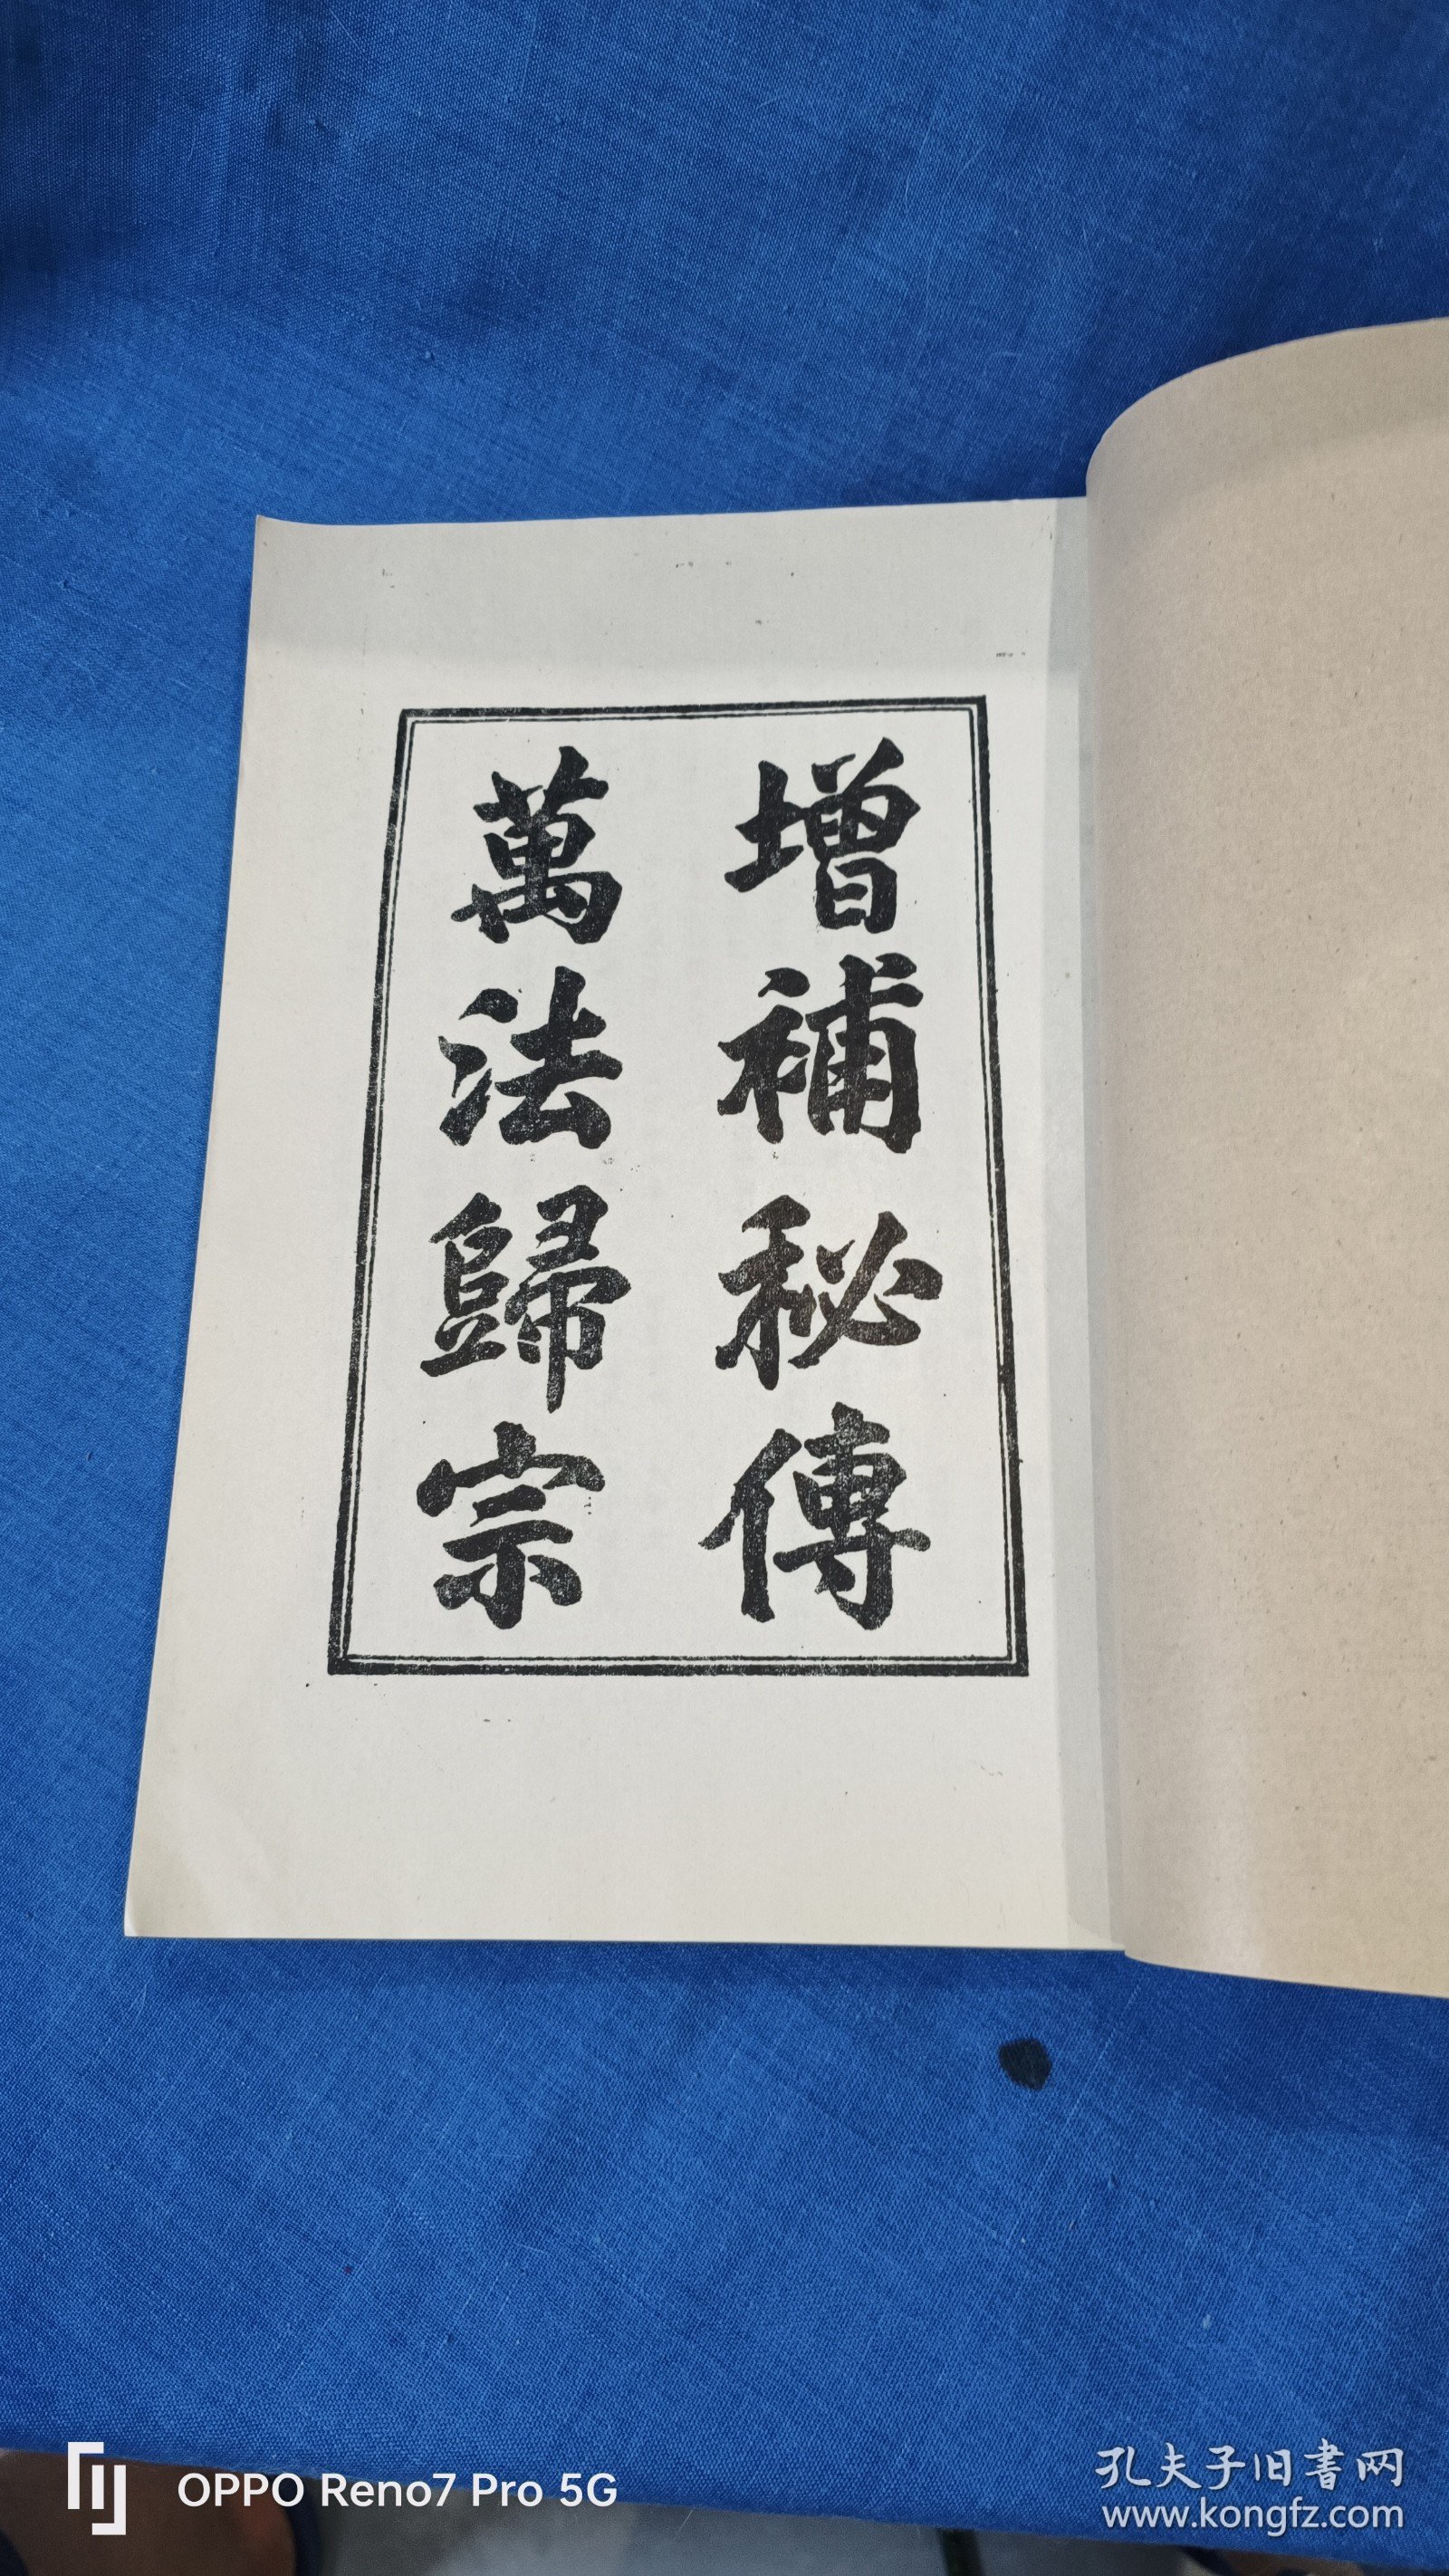 增補秘傳
萬法歸宗
OPPO Reno7 Pro 5G
孔夫子旧書网
www.kongfz.com